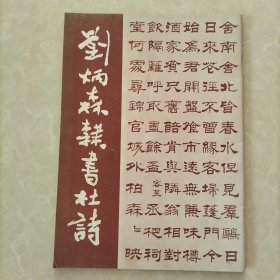 劉炳森隸書杜詩
舍南舍北皆春水但見羣鷗日
日來花徑不曾緣客掃蓬門今
始為君開盤飧市遠無兼味樽
酒家貧只舊醅肯與隣翁相對
飲隔籬呼取盡餘杯 客至 丞相祠
堂何處尋錦官城外柏森〻映